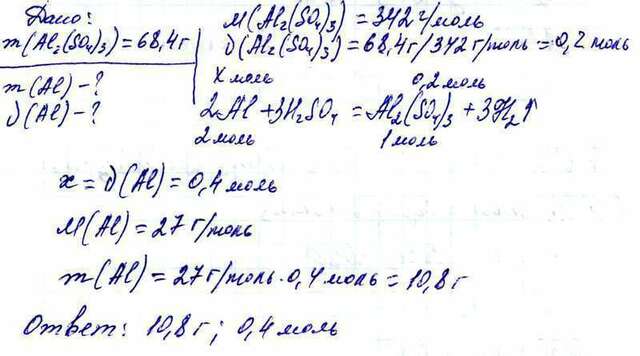 Дано:
m(Al₂(SO₄)₃)=68,4г
m(Al)-?
ν(Al)-?
M(Al₂(SO₄)₃)=342г/моль
ν(Al₂(SO₄)₃)=68,4г/342г/моль=0,2моль
x моль 0,2моль
2Al+3H₂SO₄=Al₂(SO₄)₃+3H₂↑
2моль 1моль
x=ν(Al)=0,4моль
M(Al)=27г/моль
m(Al)=27г/моль·0,4моль=10,8г
Ответ: 10,8г; 0,4моль